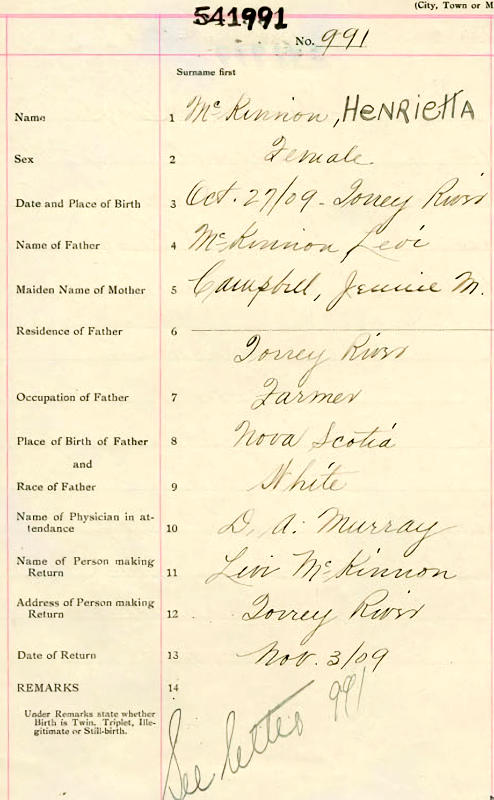 (City, Town or M
541991
No. 991
Surname first
Name 1 McKinnon, HENRIETTA
Sex 2 Female
Date and Place of Birth 3 Oct. 27/09 - Torrey River
Name of Father 4 McKinnon, Levi
Maiden Name of Mother 5 Campbell, Jennie M.
Residence of Father 6
Torrey River
Occupation of Father 7 Farmer
Place of Birth of Father 8 Nova Scotia
and
Race of Father 9 White
Name of Physician in at-
tendance 10 D. A. Murray
Name of Person making
Return 11 Levi McKinnon
Address of Person making
Return 12 Torrey River
Date of Return 13 Nov. 3/09
REMARKS 14
Under Remarks state whether
Birth is Twin. Triplet, Ille-
gitimate or Still-birth.
See letter 991